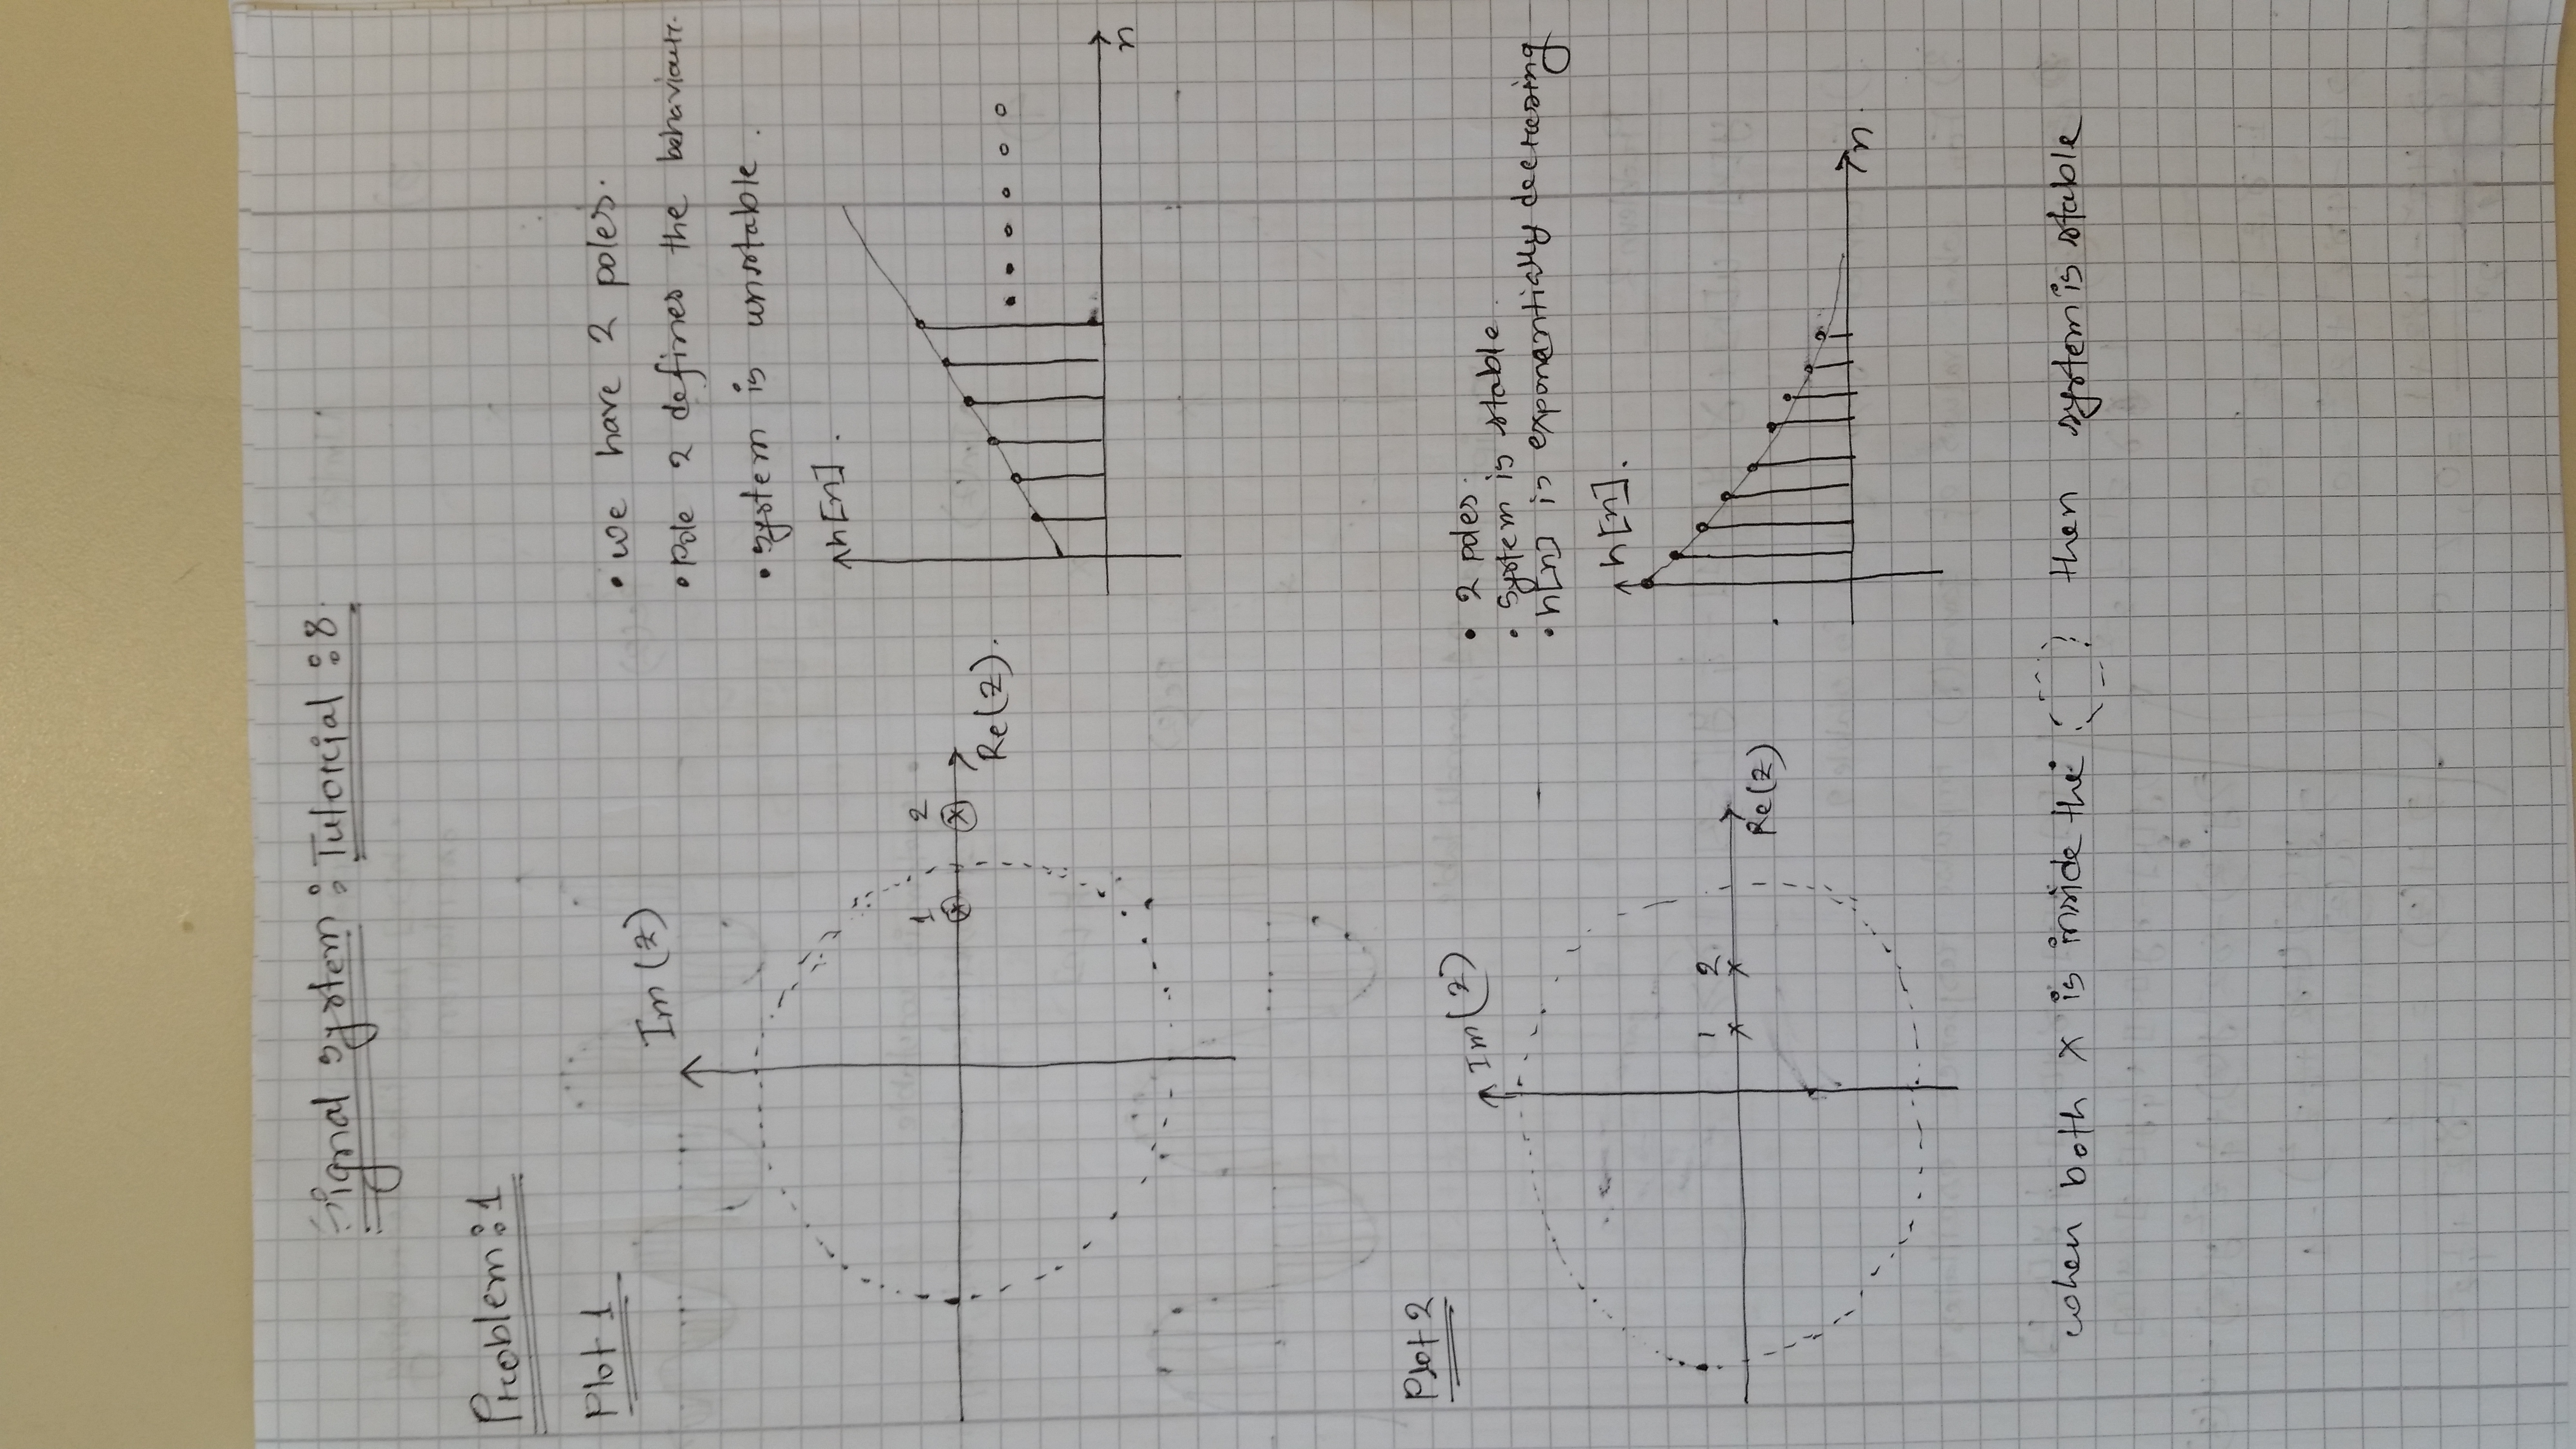 Signal system : Tutorial : 8
Problem : 1
Plot 1
Im (z)
1 2
Re(z).
• we have 2 poles.
• Pole 2 defines the behaviour.
• system is unstable.
h[n].
n
Plot 2
Im(z)
1 2
Re(z)
• 2 poles.
• system is stable.
• h[n] is exponentially decreasing
h[n].
n.
when both x is inside the then system is stable